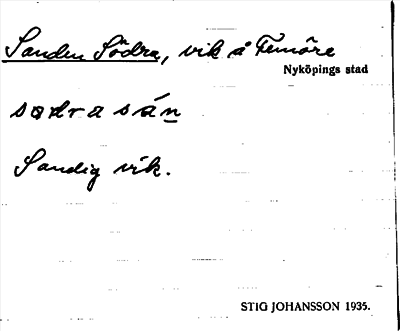 Sanden Södra, vik å Femöre
Nyköpings stad
sødra sán
Sandig vik.
STIG JOHANSSON 1935.